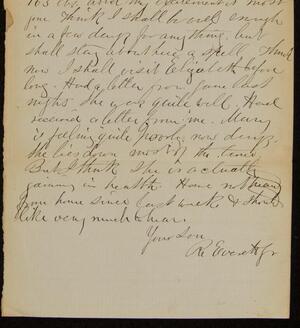 165 lbs, and my
fine. Think I shall be well enough
in a few days for anything, but
shall stay about here a spell. Think
now I shall visit Elizabeth before
long. Had a letter from came last
night. She was quite well. Had
received a letter from me. Mary
is feeling quite poorly now days.
She lies down most of the time.
But I think she is actually
gaining in health. Have not heard
from home since last week & should
like very much to hear.
Your Son,
R. Everett Jr